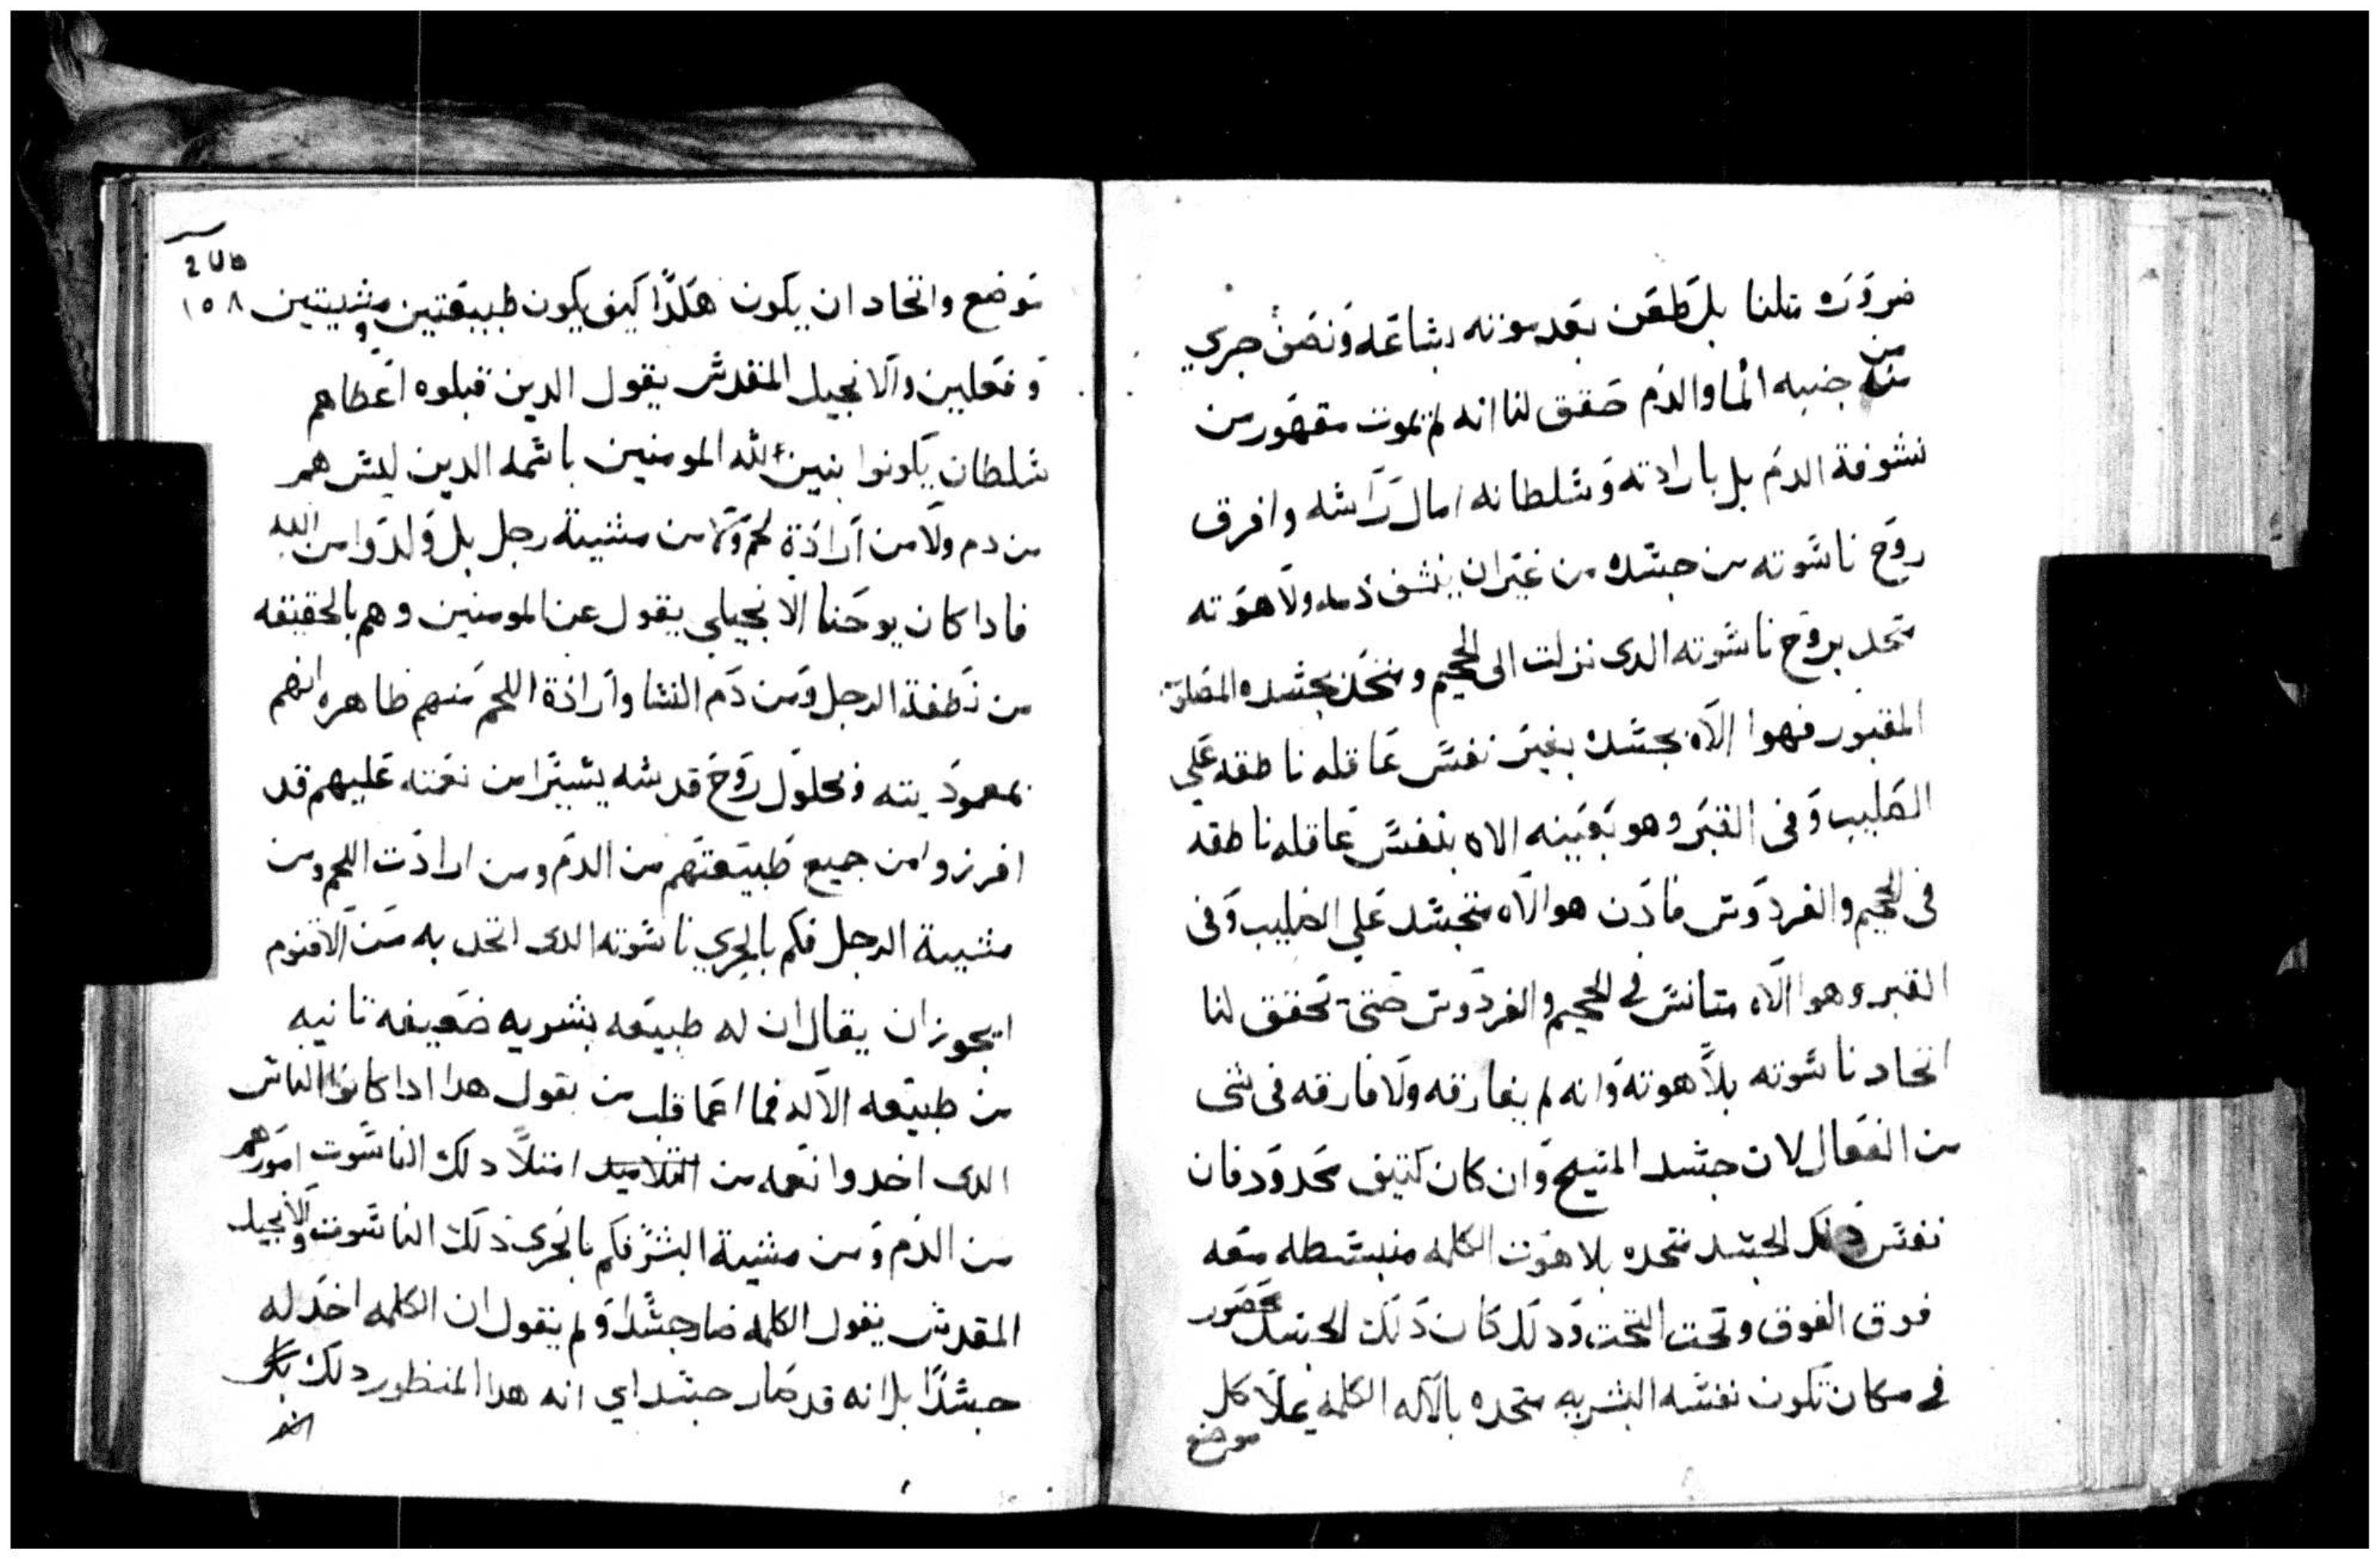 ضرورة تلنا بل طعن بعد موته بشاعه ونصف جري
من جنبه الما والدم حقق لنا انه لم يموت مقهور من
نشوفة الدم بل بارادته وسلطانه امال راسه وافرق
روح ناسوته من جسده من غير ان ينشف دمه ولاهوته
متحد بروح ناسوته الدى نزلت الى الجحيم ومتحد بجسده المصلوب
المقبور فهوا الاه بجسده بغير نفس عاقله ناطقه علي
الصليب وفى القبر وهو بعينه الاه بنفس عاقله ناطقه
فى الجحيم والفردوس فادن هو الاه متجسد علي الصليب وفى
القبر وهو الاه متانس في الجحيم والفردوس حتي تحقق لنا
اتحاد ناسوته بلاهوته وانه لم يفارقه ولا فارقه فى شى
من الفعال لان جسد المسيح وان كان كتيف محدود فان
نفس دلك الجسد متحده بلاهوت الكلمه منبسطه معه
فوق الفوق وتحت التحت ودلك كان دلك الجسد محصور
في مكان تكون نفسه البشريه متحده بالاله الكلمه يملا كل
موضع
١٥٨
موضع واتحاد ان يكون هكدا كيف يكون طبيعتين ومشيتين
وفعلين والانجيل المقدس يقول الدين قبلوه اعطاهم
سلطان يكونوا بنين لله المومنين باسمه الدين ليس هم
من دم ولا من ارادة لحم ولا من مشية رجل بل ولدوا من الله
فادا كان يوحنا الانجيلي يقول عن المومنين وهم بالحقيقه
من نطفة الرجل ومن دم النسا وارادة اللحم منهم ظاهره انهم
بمعموديته وبحلول روح قدسه يسيرا من نعمته عليهم قد
افرزوا من جميع طبيعتهم من الدم ومن ارادت اللحم ومن
مشية الرجل فكم بالحري ناسوته الدى اتحد به من الاقنوم
ايجوز ان يقال ان له طبيعه بشريه ضعيفه تانيه
من طبيعه الاله فما اعما قلب من يقول هدا ادا كانوا الناس
الدى اخدوا نعمه من امتلا دلك الناسوت امورهم
من الدم ومن مشية البشر فكم بالحرى دلك الناسوت والانجيل
المقدس يقول الكلمه صار جسدا ولم يقول ان الكلمه اخد له
جسدا بل انه قد صار جسدا اي انه هدا المنظور دلك